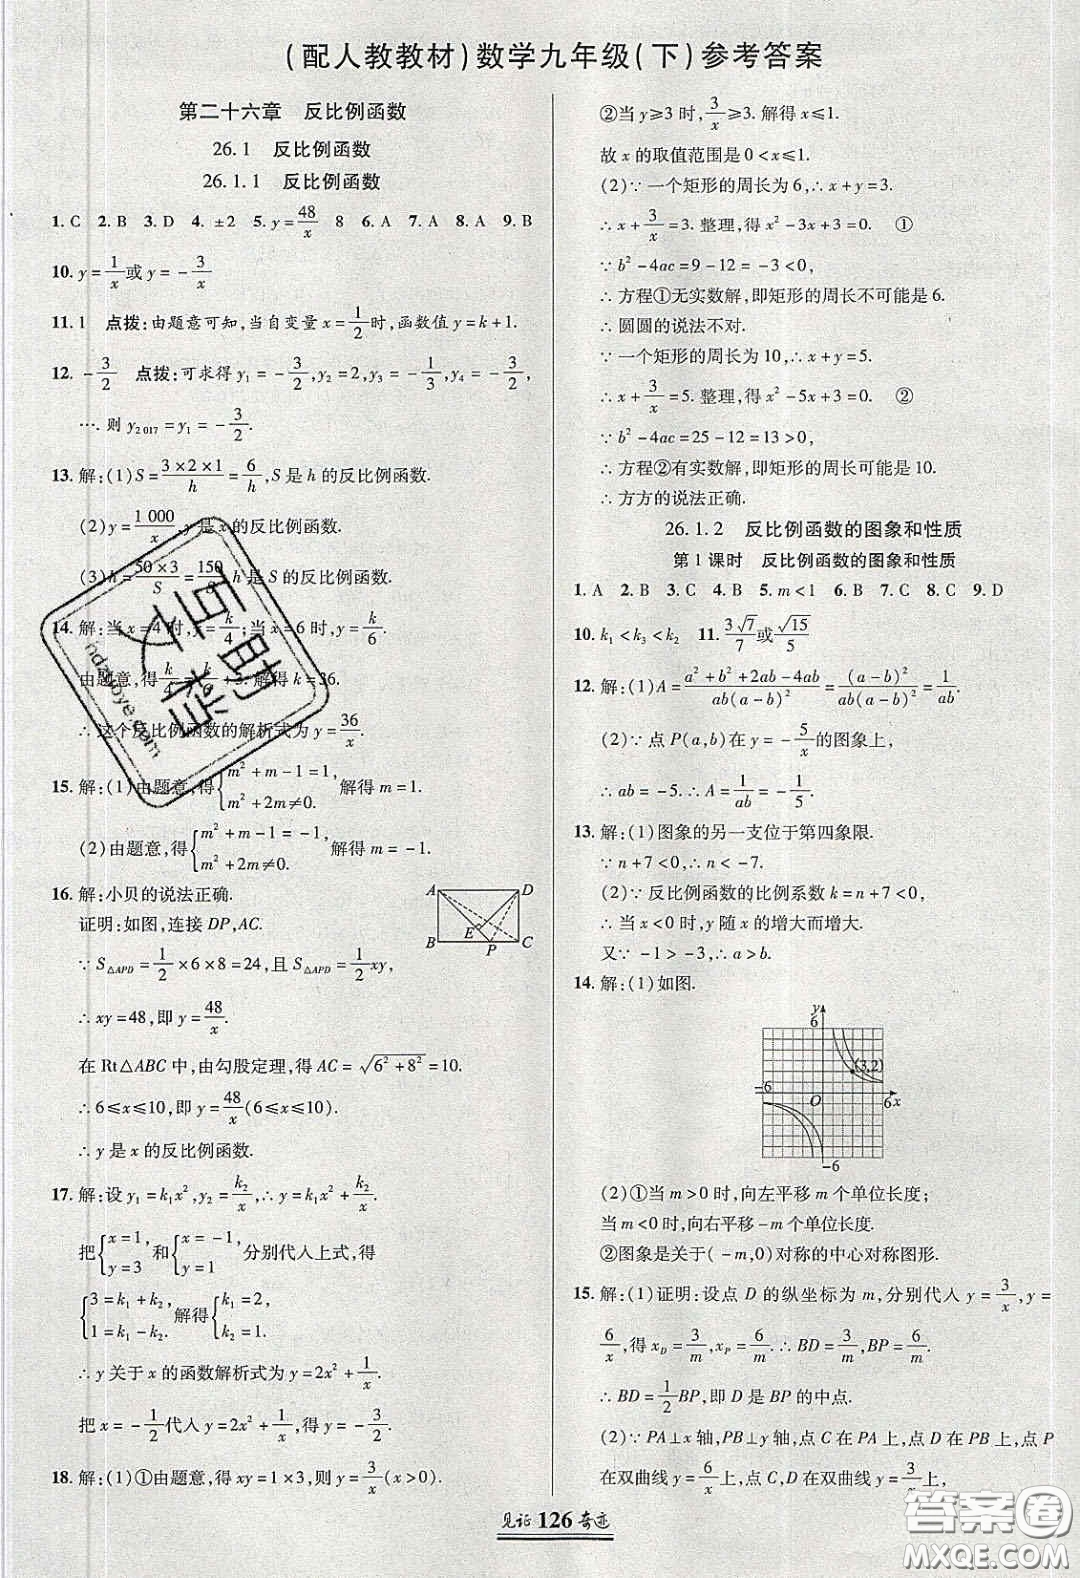 (配人教教材)数学九年级(下)参考答案
第二十六章 反比例函数
26.1 反比例函数
26.1.1 反比例函数
1. C 2. B 3. D 4. ±2 5. y=48/x 8 6. A 7. A 8. A 9. B
10. y=1/x或y=-3/x
11. 1 点拨:由题意可知,当自变量x=1/2时,函数值y=k+1.
12. -3/2 点拨:可求得y₁=-3/2,y₂=2,y₃=-1/3,y₄=-3/2,
….则y₂₀₁₇=y₁=-3/2.
13. 解:(1)S=3×2×1/h=6/h,S是h的反比例函数.
(2)y=1 000/x,y是x的反比例函数.
(3)h=50×3/S=150/S,h是S的反比例函数.
14. 解:当x=4时,y=k/4;当x=6时,y=k/6.
由题意,得k/4=k/6+3.解得k=36.
∴这个反比例函数的解析式为y=36/x.
15. 解:(1)由题意,得{m²+m-1=1, m²+2m≠0. 解得m=1.
(2)由题意,得{m²+m-1=-1, m²+2m≠0. 解得m=-1.
16. 解:小贝的说法正确.
证明:如图,连接DP,AC.
∵S△APD=1/2×6×8=24,且S△APD=1/2xy,
∴xy=48,即y=48/x.
在Rt△ABC中,由勾股定理,得AC=√(6²+8²)=10.
∴6≤x≤10,即y=48/x(6≤x≤10).
∴y是x的反比例函数.
A D
E
B P C
17. 解:设y₁=k₁x²,y₂=k₂/x,∴y=k₁x²+k₂/x.
把{x=1, y=3和{x=-1, y=1,分别代人上式,得
{3=k₁+k₂, 1=k₁-k₂. 解得{k₁=2, k₂=1.
∴y关于x的函数解析式为y=2x²+1/x.
把x=-1/2代人y=2x²+1/x,得y=-3/2.
18. 解:(1)①由题意,得xy=1×3,则y=3/x(x>0).
②当y≥3时,3/x≥3.解得x≤1.
故x的取值范围是0<x≤1.
(2)∵一个矩形的周长为6,∴x+y=3.
∴x+3/x=3.整理,得x²-3x+3=0. ①
∵b²-4ac=9-12=-3<0,
∴方程①无实数解,即矩形的周长不可能是6.
∴圆圆的说法不对.
∵一个矩形的周长为10,∴x+y=5.
∴x+3/x=5.整理,得x²-5x+3=0. ②
∵b²-4ac=25-12=13>0,
∴方程②有实数解,即矩形的周长可能是10.
∴方方的说法正确.
26.1.2 反比例函数的图象和性质
第1课时 反比例函数的图象和性质
1. A 2. B 3. C 4. B 5. m<1 6. B 7. C 8. C 9. D
10. k₁<k₃<k₂ 11. 3√7/7或√15/5
12. 解:(1)A=a²+b²+2ab-4ab/ab(a-b)²=(a-b)²/ab(a-b)²=1/ab.
(2)∵点P(a,b)在y=-5/x的图象上,
∴ab=-5.∴A=1/ab=-1/5.
13. 解:(1)图象的另一支位于第四象限.
∵n+7<0,∴n<-7.
(2)∵反比例函数的比例系数k=n+7<0,
∴当x<0时,y随x的增大而增大.
又∵-1>-3,∴a>b.
14. 解:(1)如图.
y
6
(3,2)
-6 O 6 x
-6
(2)①当m>0时,向左平移m个单位长度;
当m<0时,向右平移-m个单位长度.
②图象是关于(-m,0)对称的中心对称图形.
15. 解:(1)证明:设点D的纵坐标为m,分别代人y=3/x,y=
6/x,得x_D=3/m,x_P=6/m.∴BD=3/m,BP=6/m.
∴BD=1/2BP,即D是BP的中点.
(2)∵PA⊥x轴,PB⊥y轴,点C在PA上,点D在PB上,点P
在双曲线y=6/x上,点C,D在双曲线y=3/x上,
见证126奇迹
互助文档
ndzuoye.com
答案圈
MXQE.COM